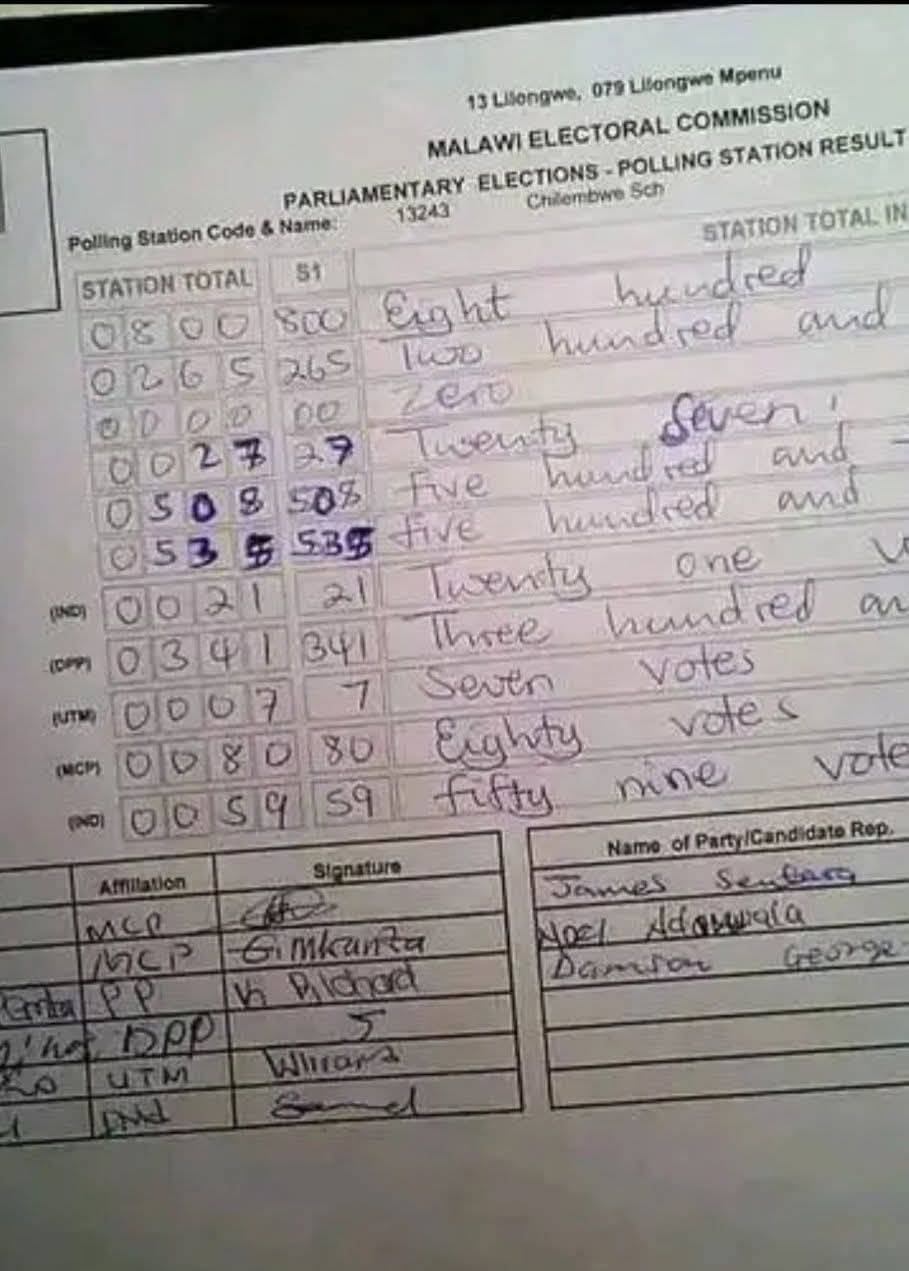 13 Lilongwe, 079 Lilongwe Mpenu
MALAWI ELECTORAL COMMISSION
PARLIAMENTARY ELECTIONS - POLLING STATION RESULT
Polling Station Code & Name: 13243 Chilembwe Sch
STATION TOTAL S1 STATION TOTAL IN
0800 800 Eight hundred
0265 265 Two hundred and
0000 00 Zero
0027 27 Twenty Seven
0508 508 five hundred and
0535 535 five hundred and
(IND) 0021 21 Twenty one
(DPP) 0341 341 Three hundred an
(UTM) 0007 7 Seven votes
(MCP) 0080 80 Eighty votes
(IND) 0059 59 fifty nine vote
Affiliation Signature Name of Party/Candidate Rep.
MCP James
MCP Noel
PP Damson George
DPP 5
UTM